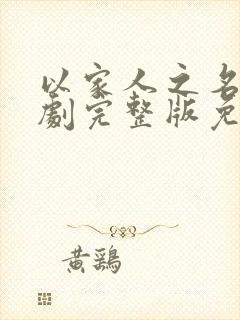 以家人之名
劇完整版免
黄鷄